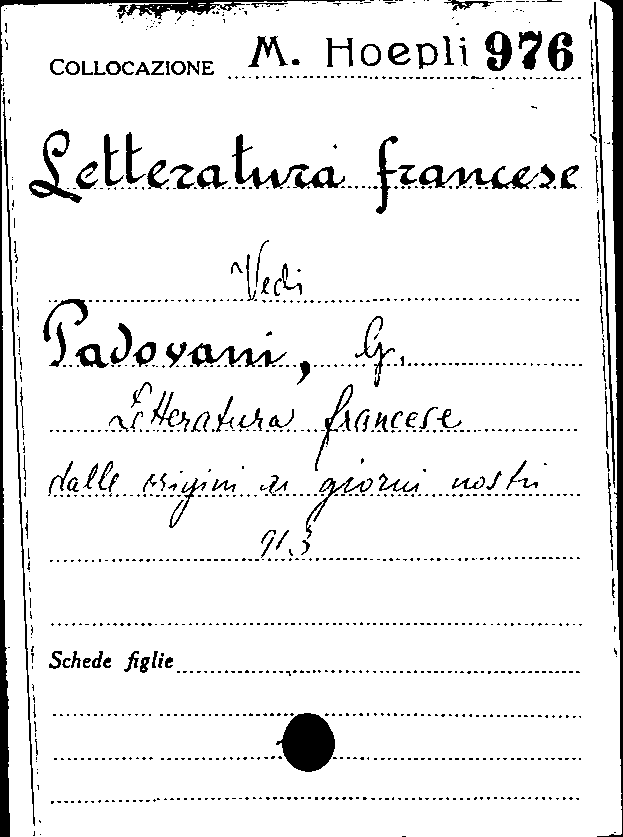 COLLOCAZIONE M. Hoepli 976
Letteratura francese
Vedi
Padovani, G.
Letteratura francese
dalle origini ai giorni nostri
913
Schede figlie